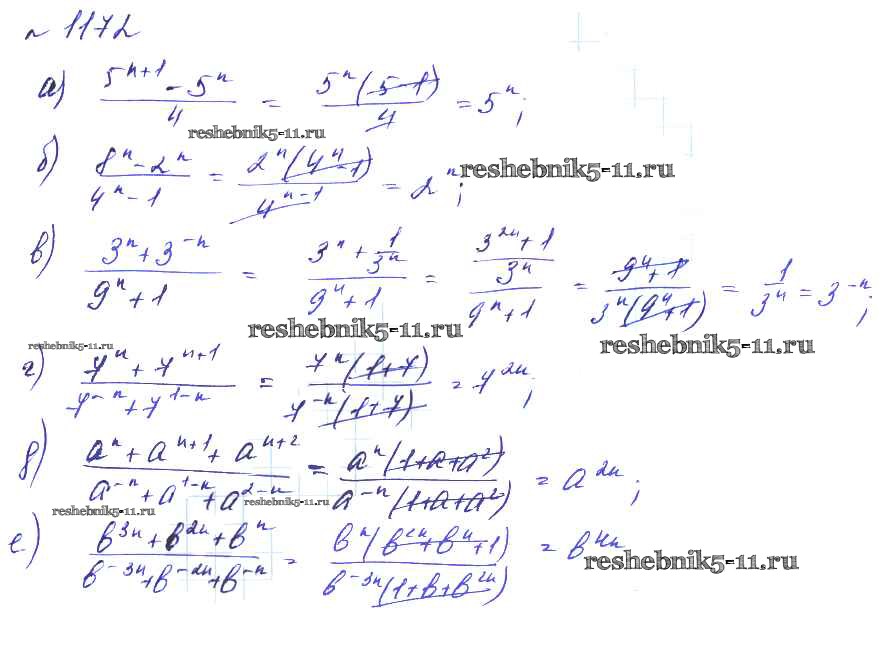 № 1172
а) (5^{n+1} - 5^n)/4 = 5^n(5-1)/4 = 5^n;
reshebnik5-11.ru
б) (8^n - 2^n)/(4^n - 1) = 2^n(4^n - 1)/(4^n - 1) = 2^n;
reshebnik5-11.ru
в) (3^n + 3^{-n})/(9^n + 1) = (3^n + 1/3^n)/(9^n + 1) = ((3^{2n} + 1)/3^n)/(9^n + 1) = (9^n + 1)/(3^n(9^n + 1)) = 1/3^n = 3^{-n};
reshebnik5-11.ru
reshebnik5-11.ru
reshebnik5-11.ru
г) (7^n + 7^{n+1})/(7^{-n} + 7^{1-n}) = 7^n(1+7)/(7^{-n}(1+7)) = 7^{2n};
д) (a^n + a^{n+1} + a^{n+2})/(a^{-n} + a^{1-n} + a^{2-n}) = a^n(1+a+a^2)/(a^{-n}(1+a+a^2)) = a^{2n};
reshebnik5-11.ru
reshebnik5-11.ru
е) (в^{3n} + в^{2n} + в^n)/(в^{-3n} + в^{-2n} + в^{-n}) = в^n(в^{2n} + в^n + 1)/(в^{-3n}(1+в+в^{2n})) = в^{4n}
reshebnik5-11.ru